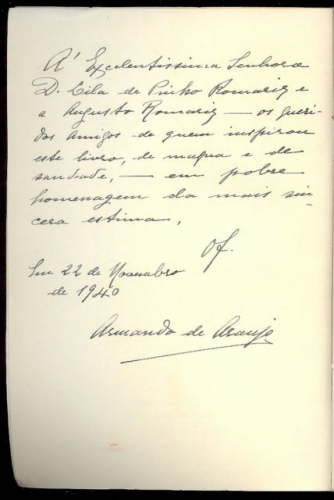 A' Excelentissima Senhora
D. Lila de Pinho Romariz e
a Augusto Romariz — os queri-
dos amigos de quem inspirou
este livro, de magua e de
saudade, — em pobre
homenagem da mais sin-
cera estima,
Of.
Em 22 de Novembro
de 1940
Armando de Araujo